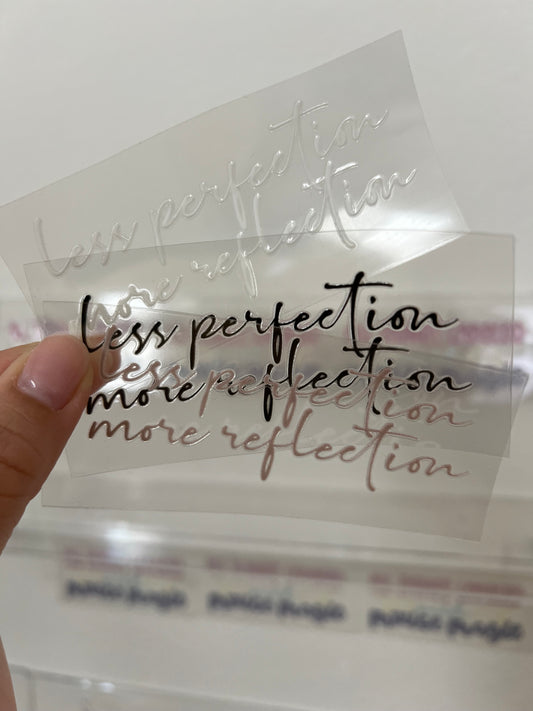 less perfection
more reflection
less perfection
more reflection
less perfection
more reflection